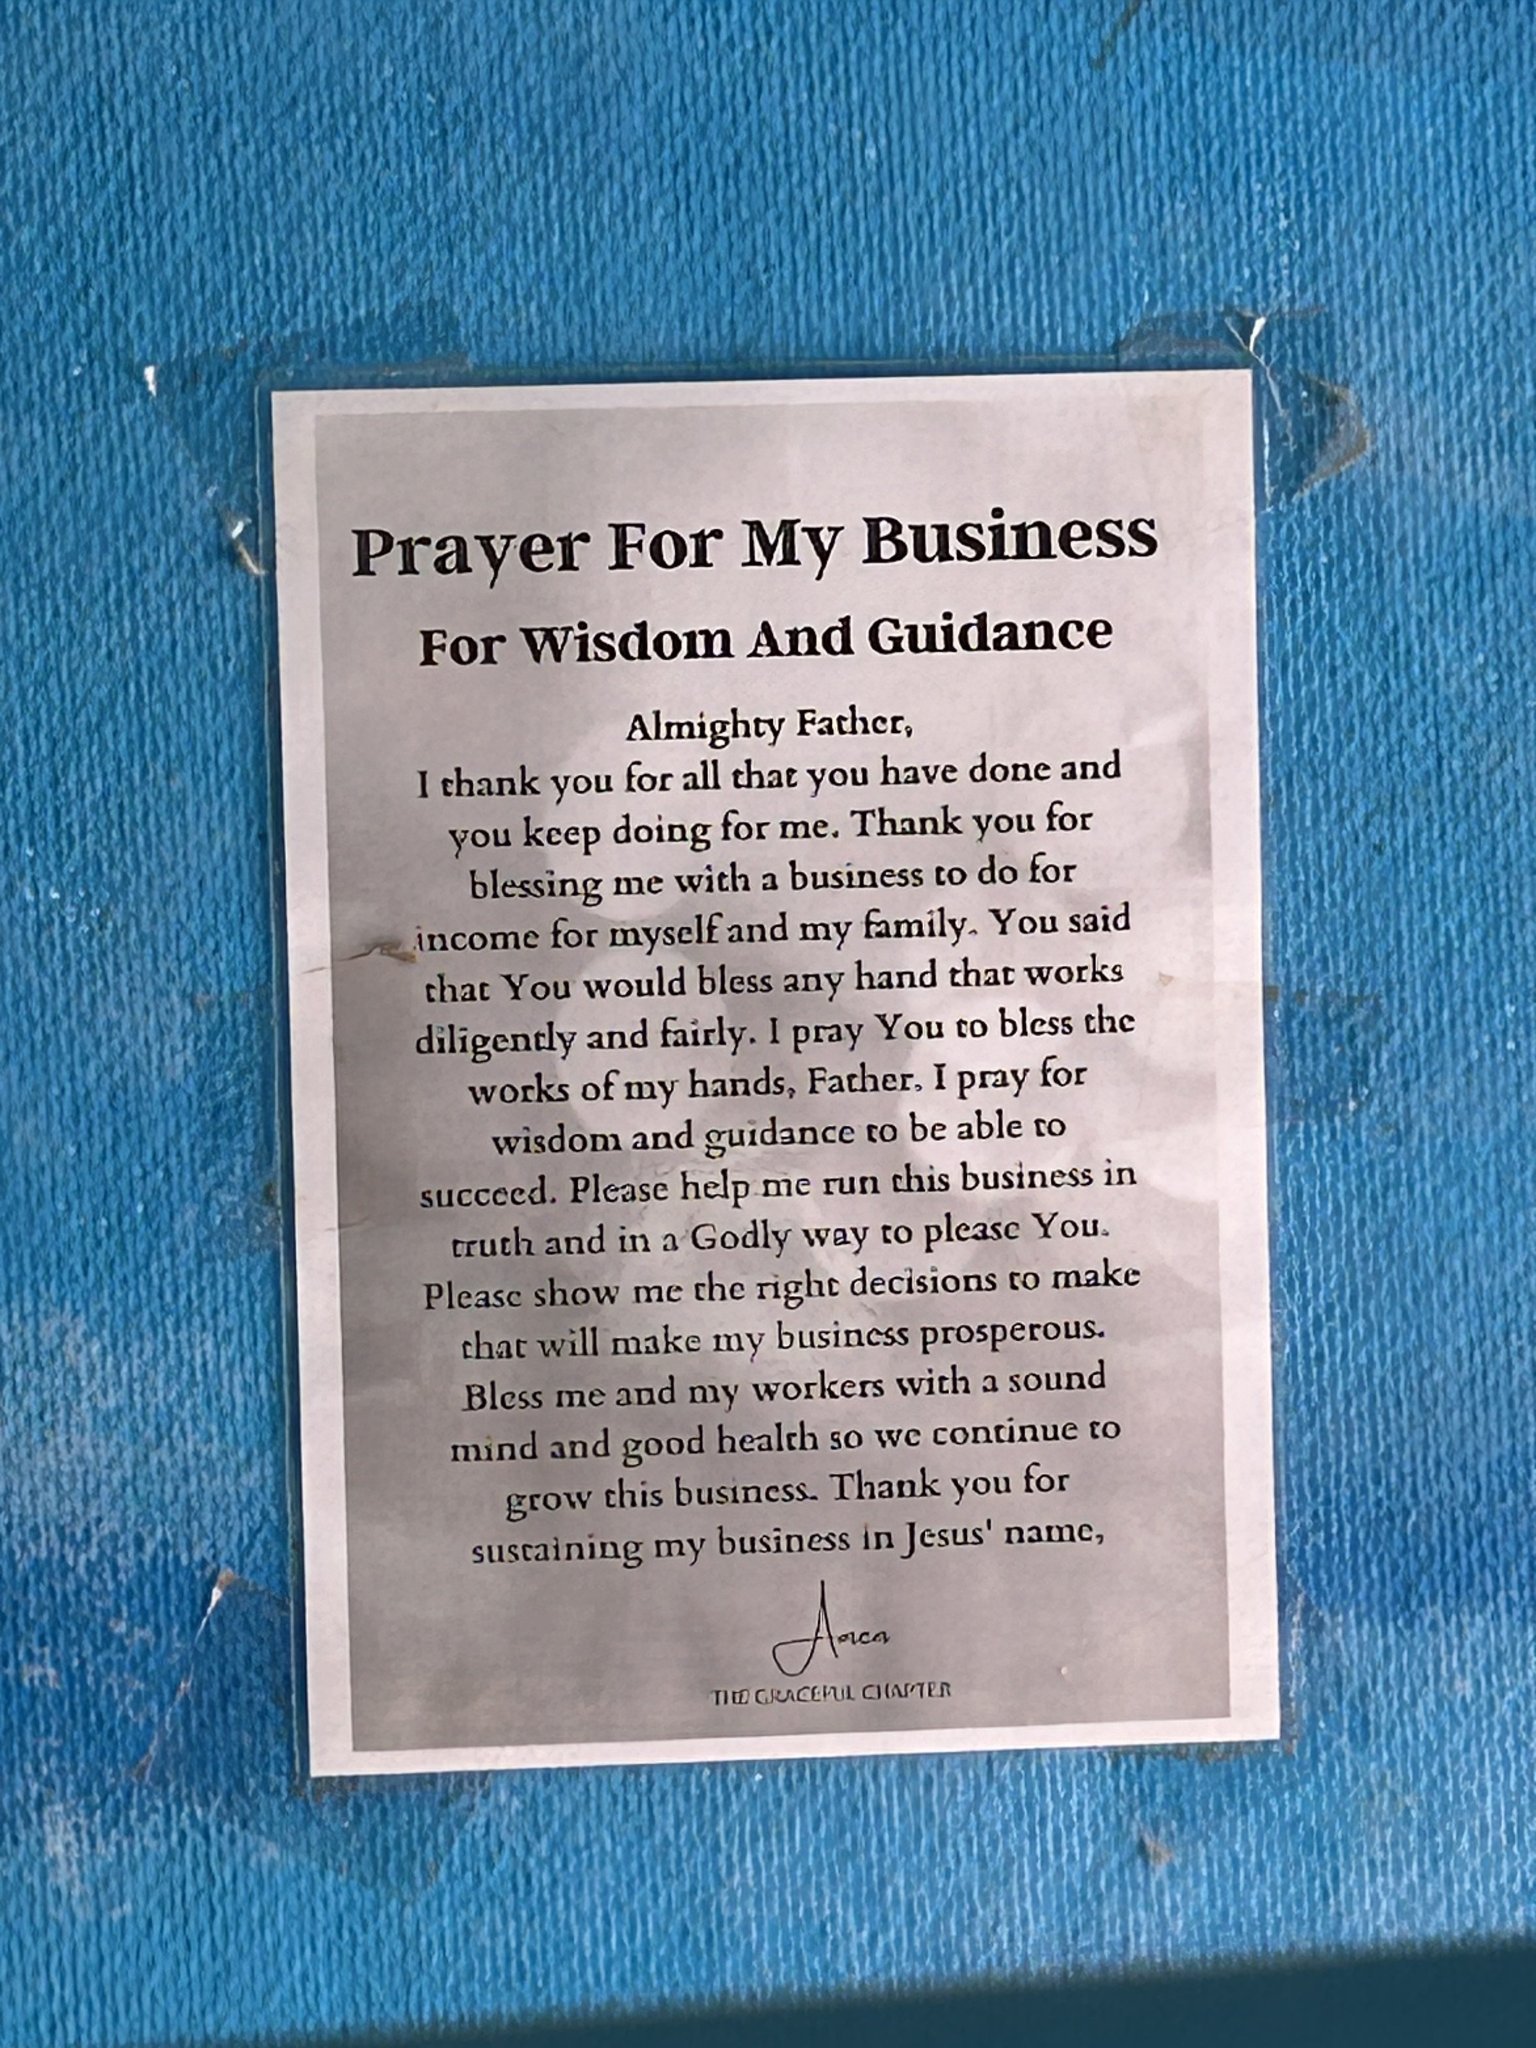 Prayer For My Business
For Wisdom And Guidance
Almighty Father,
I thank you for all that you have done and
you keep doing for me. Thank you for
blessing me with a business to do for
income for myself and my family. You said
that You would bless any hand that works
diligently and fairly. I pray You to bless the
works of my hands, Father. I pray for
wisdom and guidance to be able to
succeed. Please help me run this business in
truth and in a Godly way to please You.
Please show me the right decisions to make
that will make my business prosperous.
Bless me and my workers with a sound
mind and good health so we continue to
grow this business. Thank you for
sustaining my business in Jesus' name,
THE GRACEFUL CHAPTER